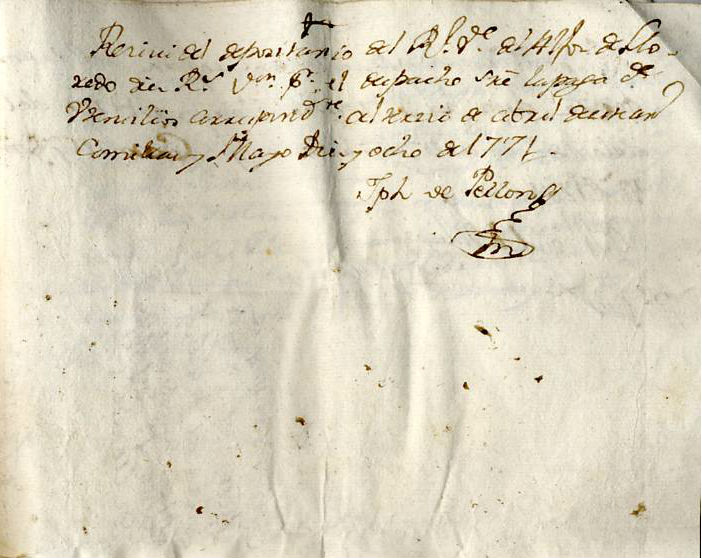 Reciui del depositario del Rl. Ve. del Alfoz de Llo-
redo diez Rs. Von. pr. el despacho sre la paga de
Vtencilios correspondte. al tercio de abril de este año
Comillas y Mayo Diez y ocho de 1771.
Jph de Pellon